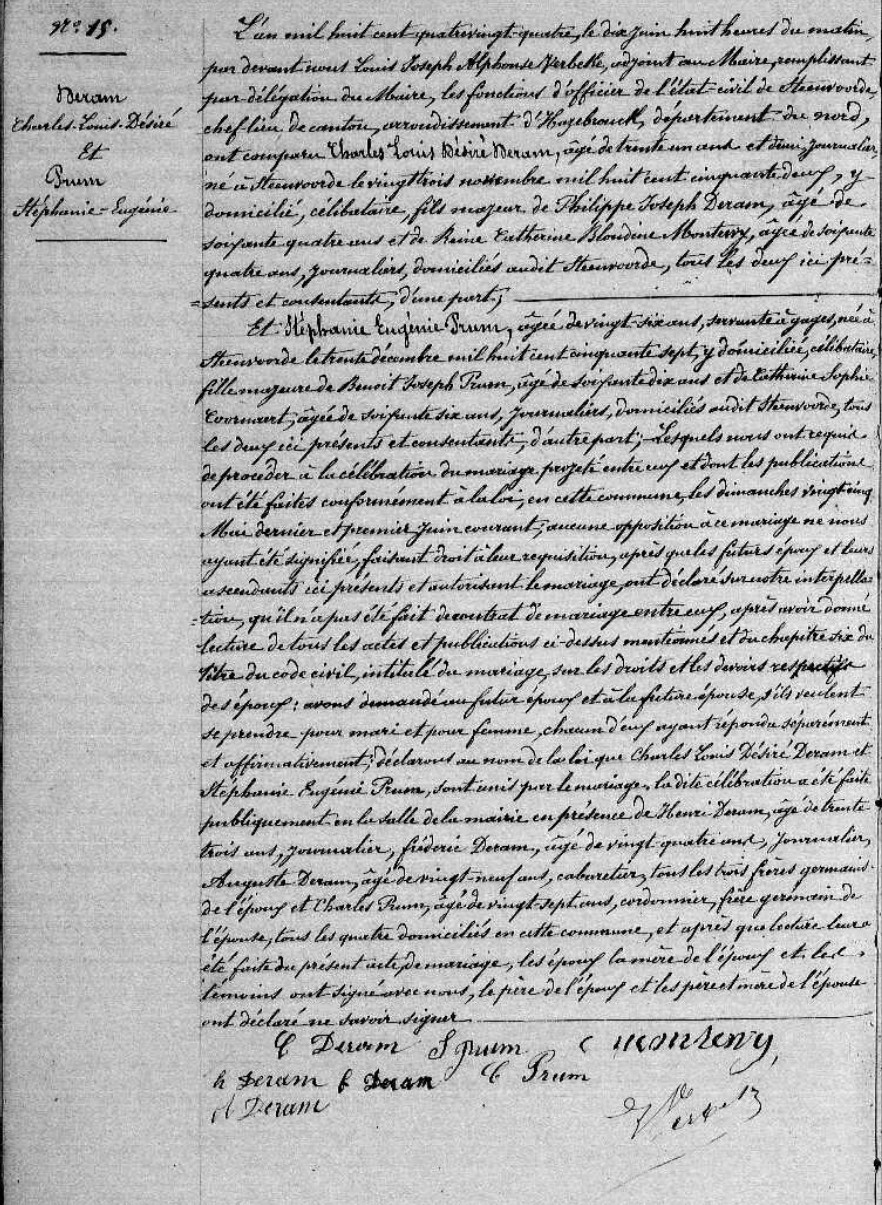 N.º 15.
Deram
Charles-Louis-Désiré
Et
Prum
Stéphanie-Eugénie
L'an mil huit cent quatrevingt-quatre, le dix Juin huit heures du matin,
par devant nous Louis Joseph Alphonse Verbeke, adjoint au Maire, remplissant
par délégation du Maire, les fonctions d'officier de l'état-civil de Steenvoorde,
chef lieu de canton, arrondissement d'Hazebrouck, département du nord,
ont comparu Charles Louis Désiré Deram, âgé de trente un ans et demi, journalier,
né à Steenvoorde le vingt trois novembre mil huit cent cinquante deux, y
domicilié, célibataire, fils majeur de Philippe Joseph Deram, âgé de
soixante quatre ans et de Reine Catherine Blondine Monteny, âgée de soixante
quatre ans, journaliers, domiciliés audit Steenvoorde, tous les deux ici pré=
=sents et consentants, d'une part;
Et Stéphanie Eugénie Prum, âgée de vingt-six ans, servante à gages, née à
Steenvoorde le trente décembre mil huit cent cinquante sept, y domiciliée, célibataire,
fille majeure de Benoit Joseph Prum, âgé de soixante dix ans et de Catherine Sophie
Coornaert, âgée de soixante six ans, journaliers, domiciliés audit Steenvoorde, tous
les deux ici présents et consentants, d'autre part; Lesquels nous ont requis
de procéder à la célébration du mariage projeté entre eux et dont les publications
ont été faites conformément à la loi, en cette commune, les dimanches vingt cinq
Mai dernier et premier Juin courant; aucune opposition à ce mariage ne nous
ayant été signifiée, faisant droit à leur requisition, après que les futurs époux et leurs
ascendants ici présents et autorisant le mariage, ont déclaré sur notre interpella=
=tion, qu'il n'a pas été fait de contrat de mariage entre eux, après avoir donné
lecture de tous les actes et publications ci-dessus mentionnés et du chapitre six du
titre du code civil, intitulé du mariage, sur les droits et les devoirs respectifs
des époux: avons demandé au futur époux et à la future épouse, s'ils veulent
se prendre pour mari et pour femme, chacun d'eux ayant répondu séparément
et affirmativement; déclarons au nom de la loi que Charles Louis Désiré Deram et
Stéphanie Eugénie Prum, sont unis par le mariage, la dite célébration a été faite
publiquement en la salle de la mairie en présence de Henri Deram, âgé de trente
trois ans, journalier, fréderic Deram, âgé de vingt-quatre ans, journalier,
Auguste Deram, âgé de vingt-neuf ans, cabaretier, tous les trois frères germains
de l'époux et Charles Prum, âgé de vingt-sept ans, cordonnier, frère germain de
l'épouse, tous les quatre domiciliés en cette commune, et après que lecture leur a
été faite du présent acte de mariage, les époux la mère de l'époux et les
témoins ont signé avec nous, le père de l'époux et les père et mère de l'épouse
ont déclaré ne savoir signer
C Deram S Prum C monteny
h Deram f Deram C Prum
A Deram